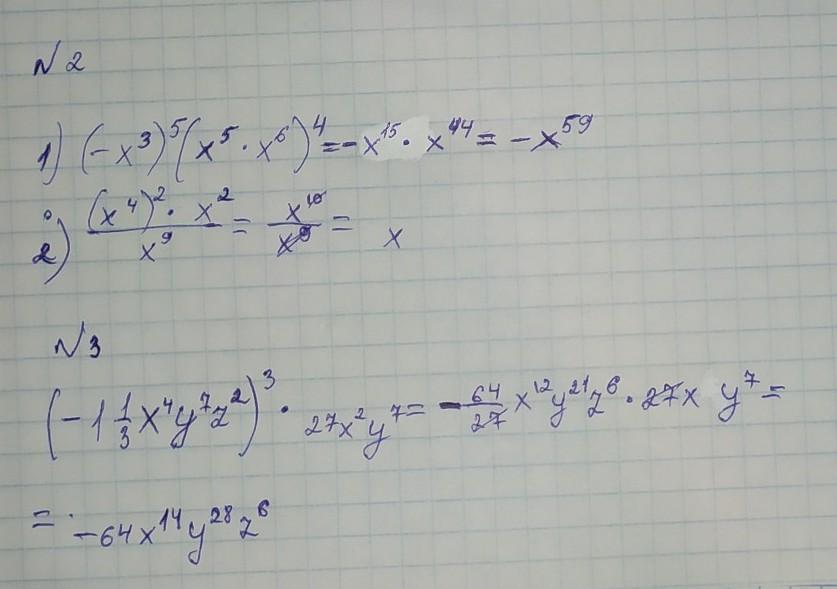 №2
1) (-x³)⁵(x⁵·x⁶)⁴=-x¹⁵·x⁴⁴=-x⁵⁹
2) (x⁴)²·x²/x⁹=x¹⁰/x⁹=x
№3
(-1 1/3 x⁴y⁷z²)³·27x²y⁷=-64/27 x¹²y²¹z⁶·27x y⁷=
=-64x¹⁴y²⁸z⁶